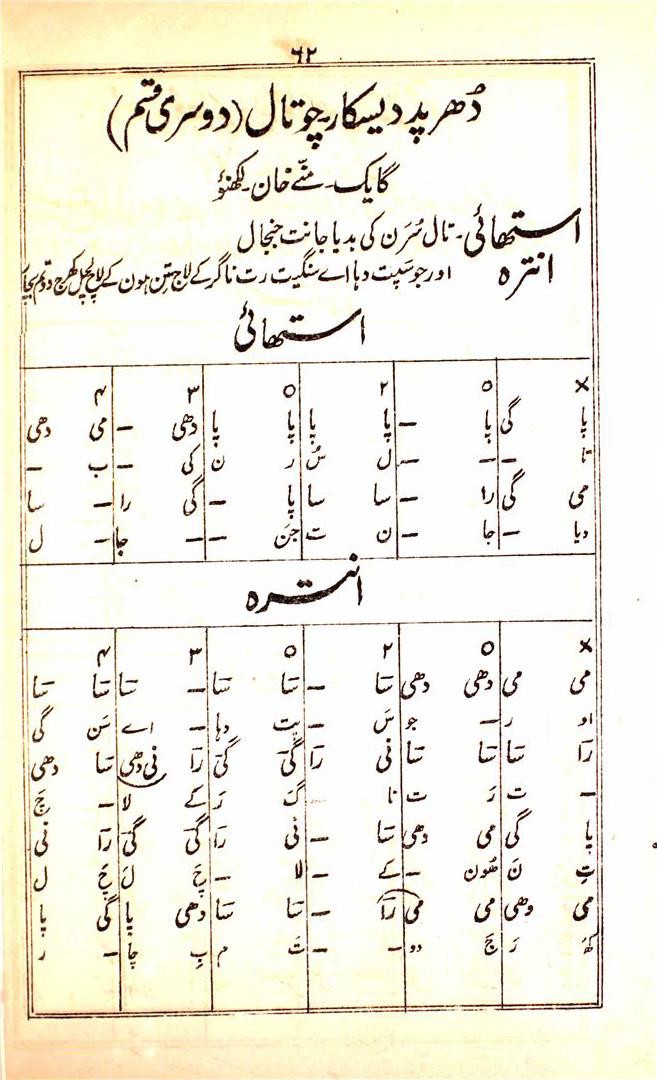 ۶۲
دُھرپد دیسکار۔ چوتال (دوسری قسم)
گایک۔ منّے خان۔ لکھنؤ
استھائی۔ تال سُرَن کی بدیا جانت جنجال
انترہ اور جو سَپت دہا اے سنگیت رت ناگر کے لاج تِن ہون کے لالچ کھرج
استھائی
× ۰ ۲ ۰ ۳ ۴
پا گی پا – پا پا پا پا دھی – می دھی
تا – – – ل سُ ر ن کی – ب –
می گی را – سا سا پا – گی را – سا
دیا – جا – ن ت جَن – – جا – ل
انترہ
× ۰ ۲ ۰ ۳ ۴
می می دھی دھی سَا – سَا سَا – سَا سَا سَا
او ر – جو سَ – پت دہا – اے سَن گی
رَا سَا سَا سَا نی رَا گَی گَی رَا نی دھی سَا دھی
– ت رَ ت نا – گ رَ کے لا – جَ
پا گی می دھی سَا – نی رَا گَی گَی رَا نی
تِ نَ ھُون – کے – لا – چَ لَ چَ ل
می دھی می می رَا – سَا سَا دھی پا گی پا
کھَ رَ جَ دو – – تَ م بِ چا – ر